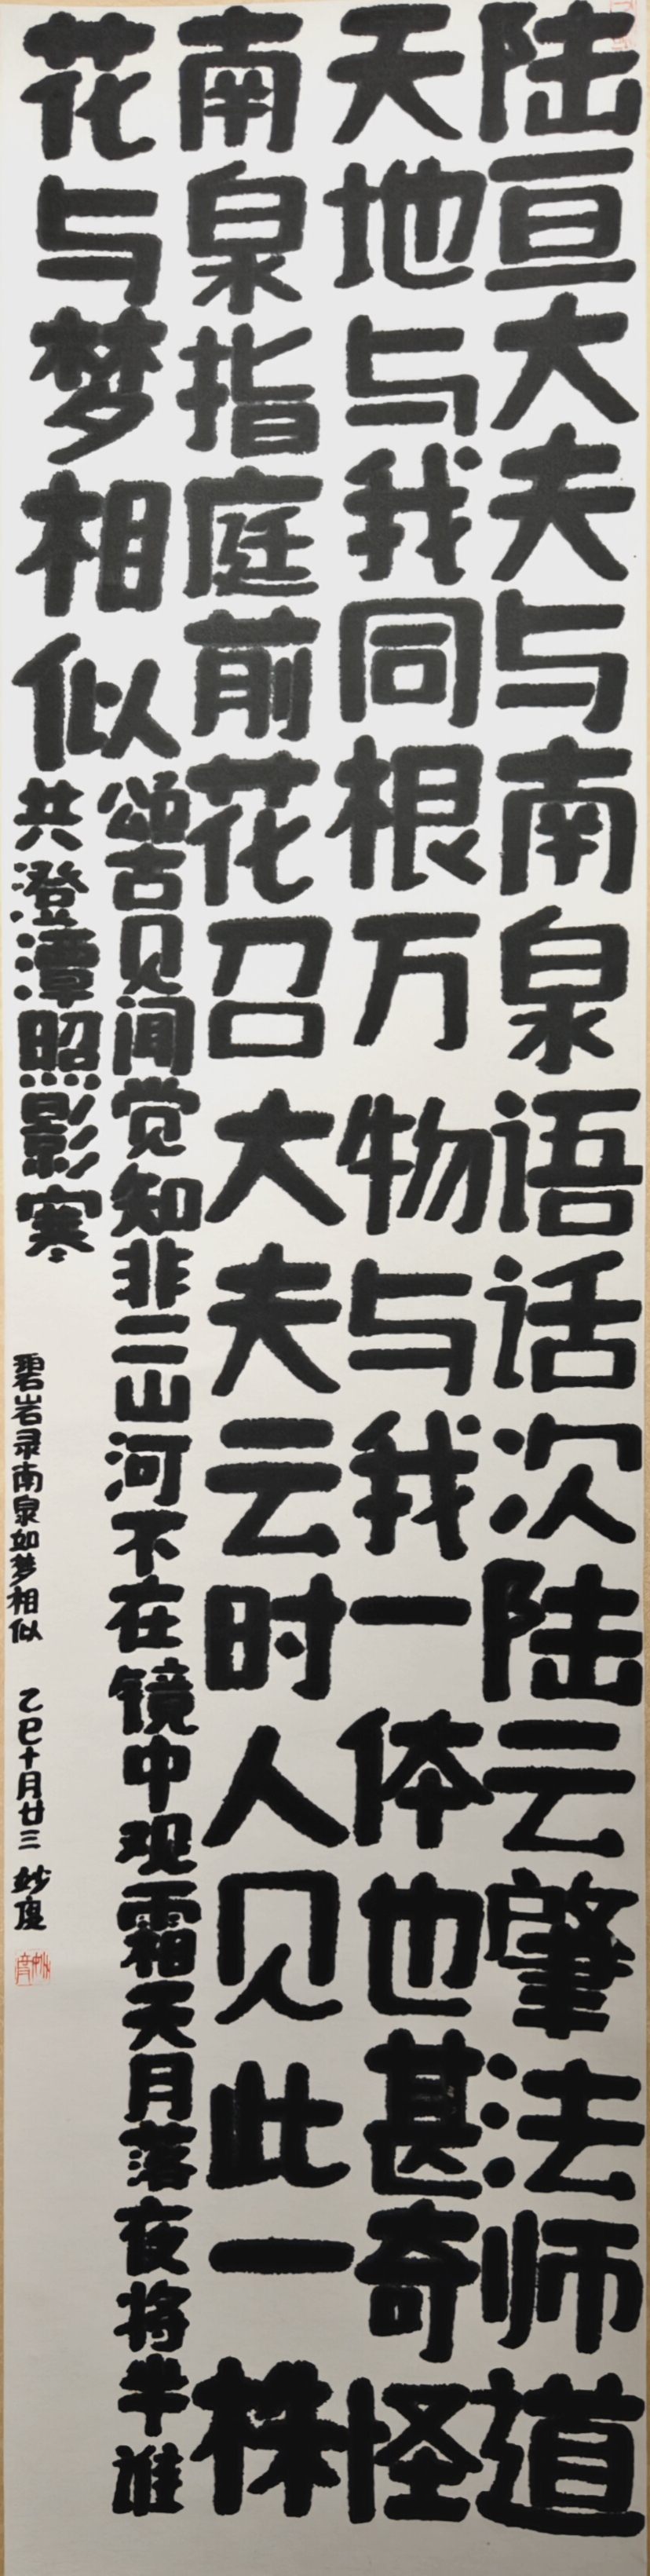 陆亘大夫与南泉语话次陆云肇法师道
天地与我同根万物与我一体也甚奇怪
南泉指庭前花召大夫云时人见此一株
花与梦相似
颂古见闻觉知非一二山河不在镜中观霜天月落夜将半谁
共澄潭照影寒
碧岩录南泉如梦相似 乙巳十月廿三 妙虔